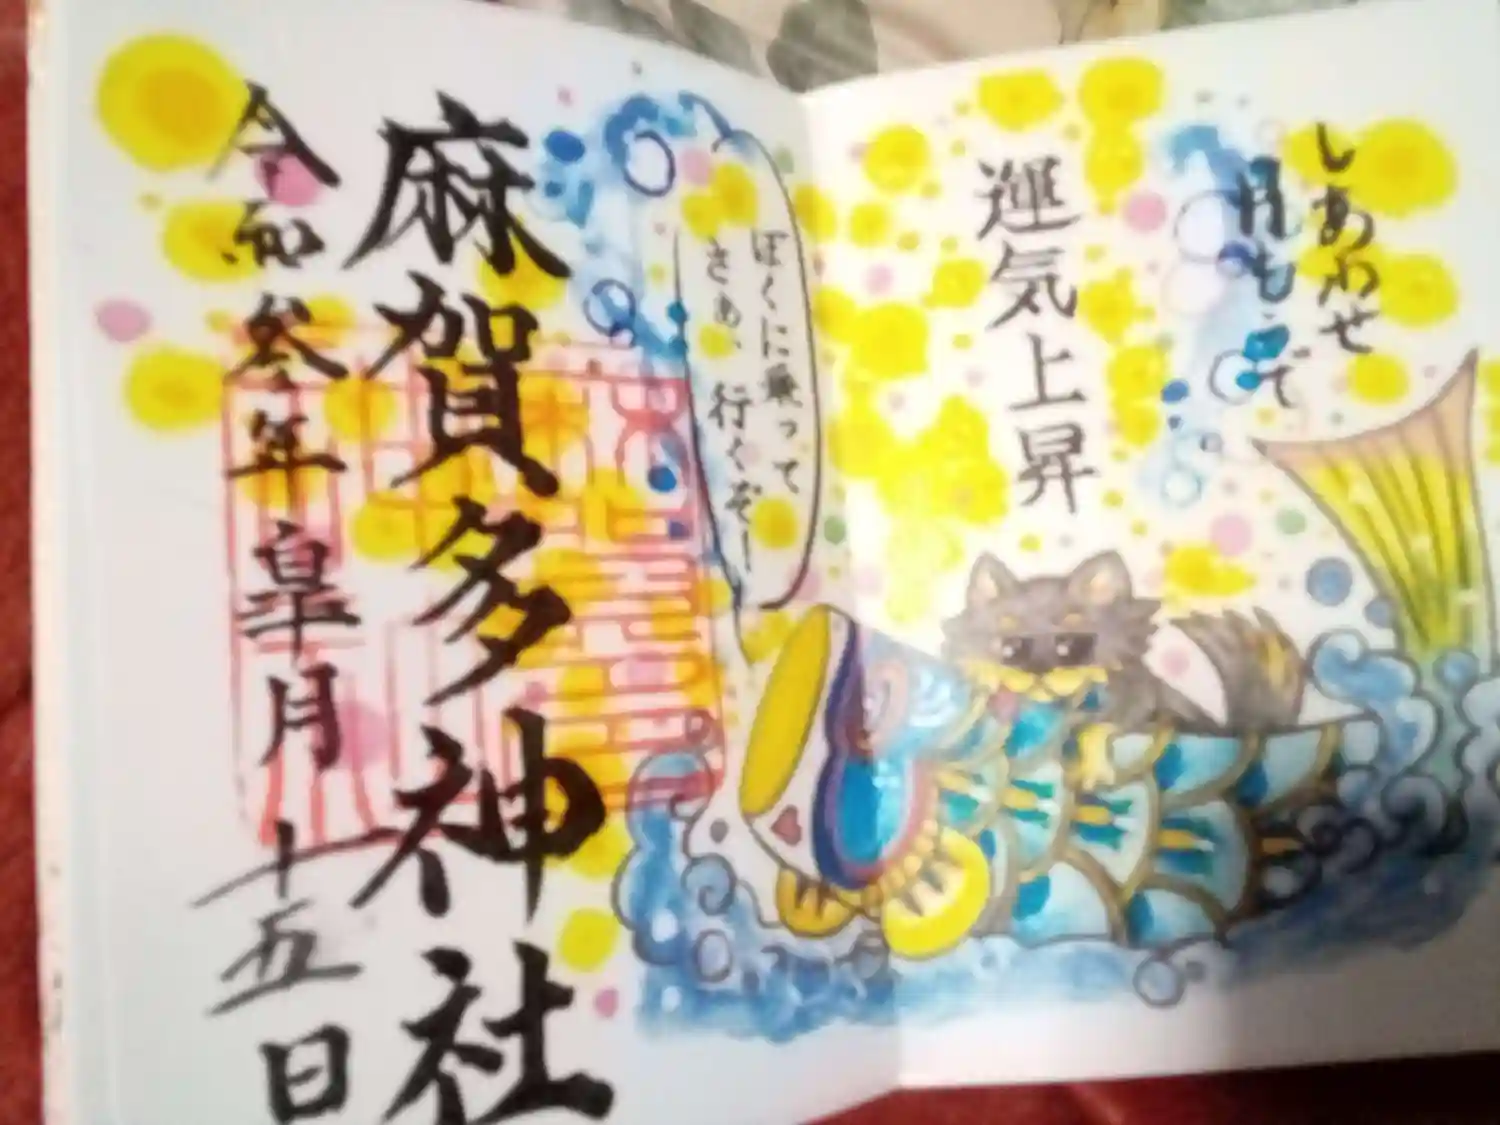 しあわせ
月もうで
運気上昇
ぼくに乗って
さぁ、行くぞー
麻賀多神社
令和参年皐月十五日